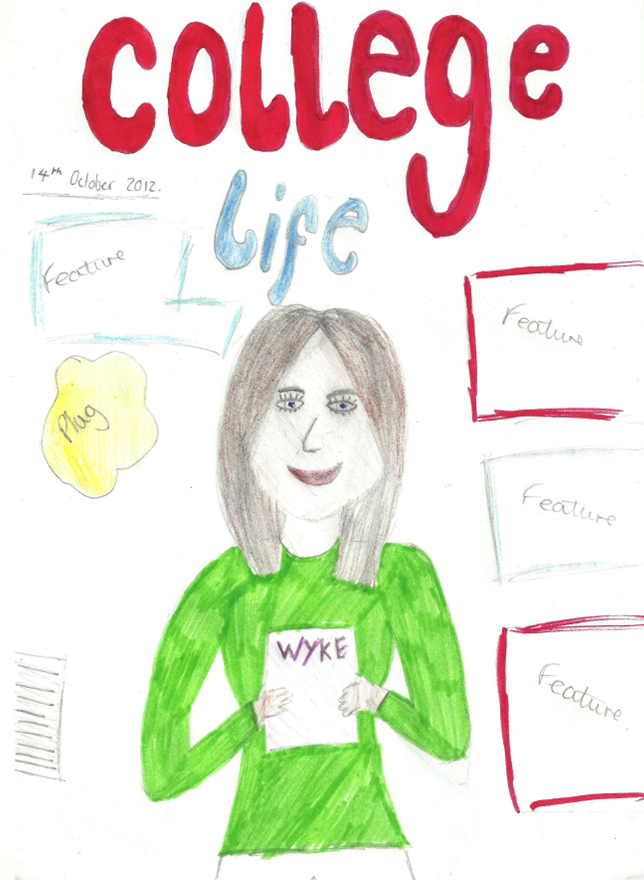 college
14th October 2012.
life
Feature
Feature
Plug
Feature
WYKE
Feature